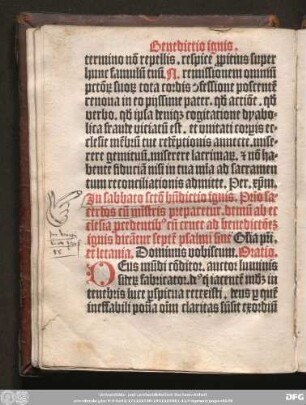 Benedictio ignis.
termino nō repellis. respice ꝓpitius super
hunc famulū tuū. N. remissionem omniū
pctōꝝ suoꝝ tota cordis ↄfessione poscentē
renoua in eo pijssime pater. qd̄ actiōe. qd̄
verbo. qd̄ ipsa deniqꝫ cogitatione dyabo-
lica fraude viciatū est. et vnitati corꝑis ec-
clesie mēbrū tue redēptionis annecte. mise-
rere gemituū. miserere lacrimaꝝ. ⁊ nō ha-
bentē fiduciā nisi in tua mīa ad sacramen
tum reconciliationis admitte. Per. xp̄m.
In sabbato sctō bn̄dictio ignis. Prīo sa-
cerdos cū mīstris preparetur. demū ab ec
clesia precedentibꝰ cū cruce ad benedictōeꝫ
ignis dicātur septē psalmi sine Glīa pr̄i.
et letania. Dominus vobiscum. Oratio.
DEus mūdi cōditor. auctor luminis
siderꝝ fabricator. dꝰ qͥ iacentē mūdū in
tenebris luce ꝑspicua retexisti. deus ꝑ quē
ineffabili potētia oīm claritas sūpsit exordiū